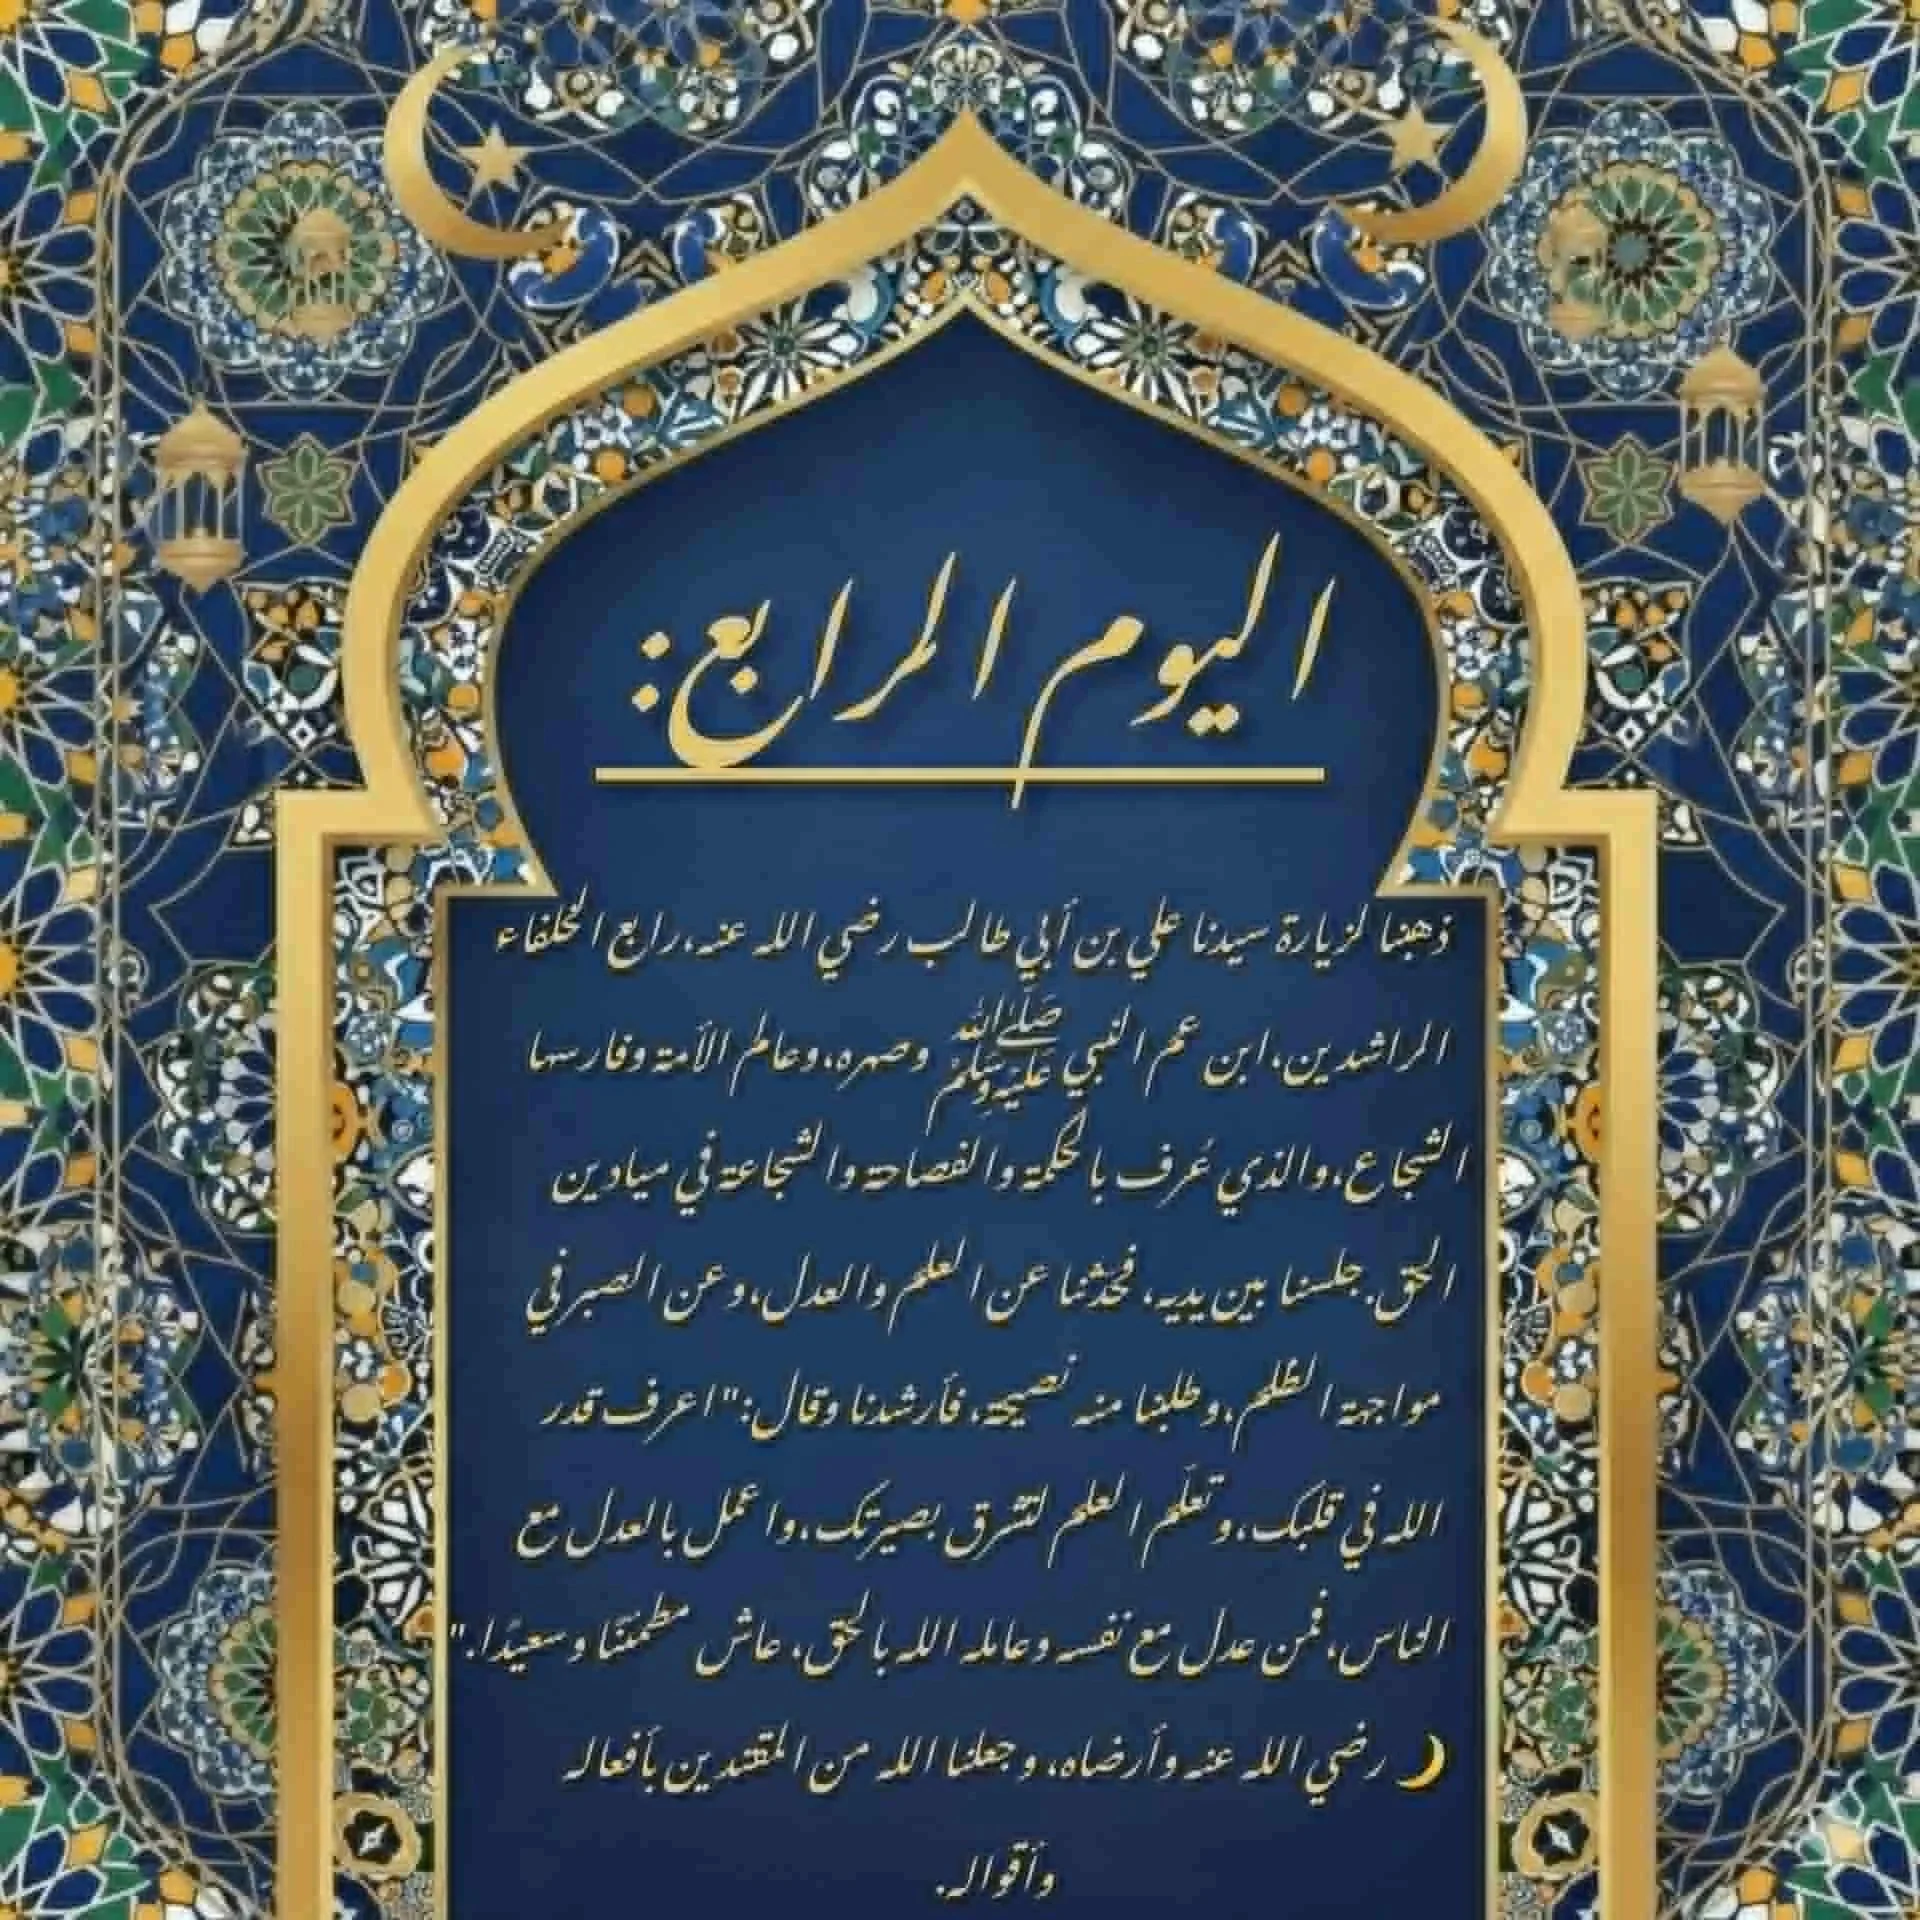 اليوم الرابع:
ذهبنا لزيارة سيدنا علي بن أبي طالب رضي الله عنه، رابع الخلفاء
الراشدين، ابن عم النبي ﷺ وصهره، وعالم الأمة وفارسها
الشجاع، والذي عُرف بالحكمة والفصاحة والشجاعة في ميادين
الحق. جلسنا بين يديه، فحدّثنا عن العلم والعدل، وعن الصبر في
مواجهة الظلم، وطلبنا منه نصيحة، فأرشدنا وقال: "اعرف قدر
الله في قلبك، وتعلّم العلم لتشرق بصيرتك، واعمل بالعدل مع
الناس، فمن عدل مع نفسه وعامله الله بالحق، عاش مطمئنًا وسعيدًا."
🌙 رضي الله عنه وأرضاه، وجعلنا الله من المقتدين بأفعاله
وأقواله.